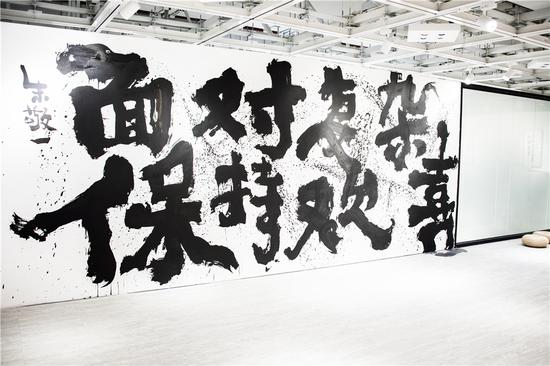 面对复杂
保持欢喜
朱敬一